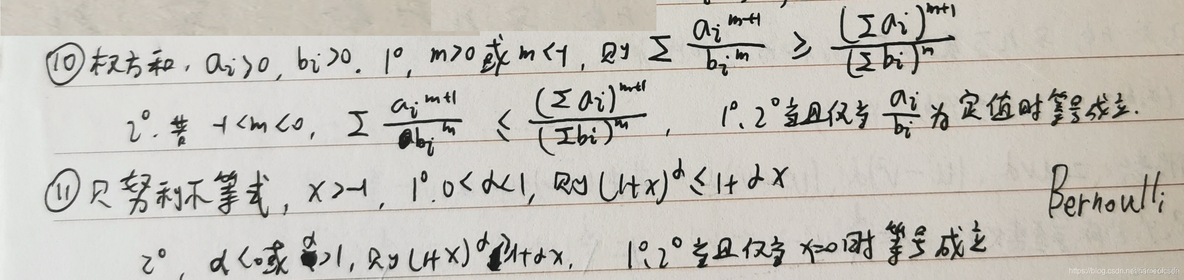 ⑩ 权方和, aᵢ>0, bᵢ>0. 1°, m>0 或 m<-1, 则 Σ aᵢ^(m+1)/bᵢ^m ≥ (Σaᵢ)^(m+1)/(Σbᵢ)^m
2°. 若 -1<m<0, Σ aᵢ^(m+1)/bᵢ^m ≤ (Σaᵢ)^(m+1)/(Σbᵢ)^m, 1°、2° 当且仅当 aᵢ/bᵢ 为定值时等号成立.
⑪ 贝努利不等式, x>-1, 1°. 0<α<1, 则 (1+x)^α ≤ 1+αx
Bernoulli
2°, α<0 或 α>1, 则 (1+x)^α ≥ 1+αx, 1°、2° 当且仅当 x=0 时等号成立